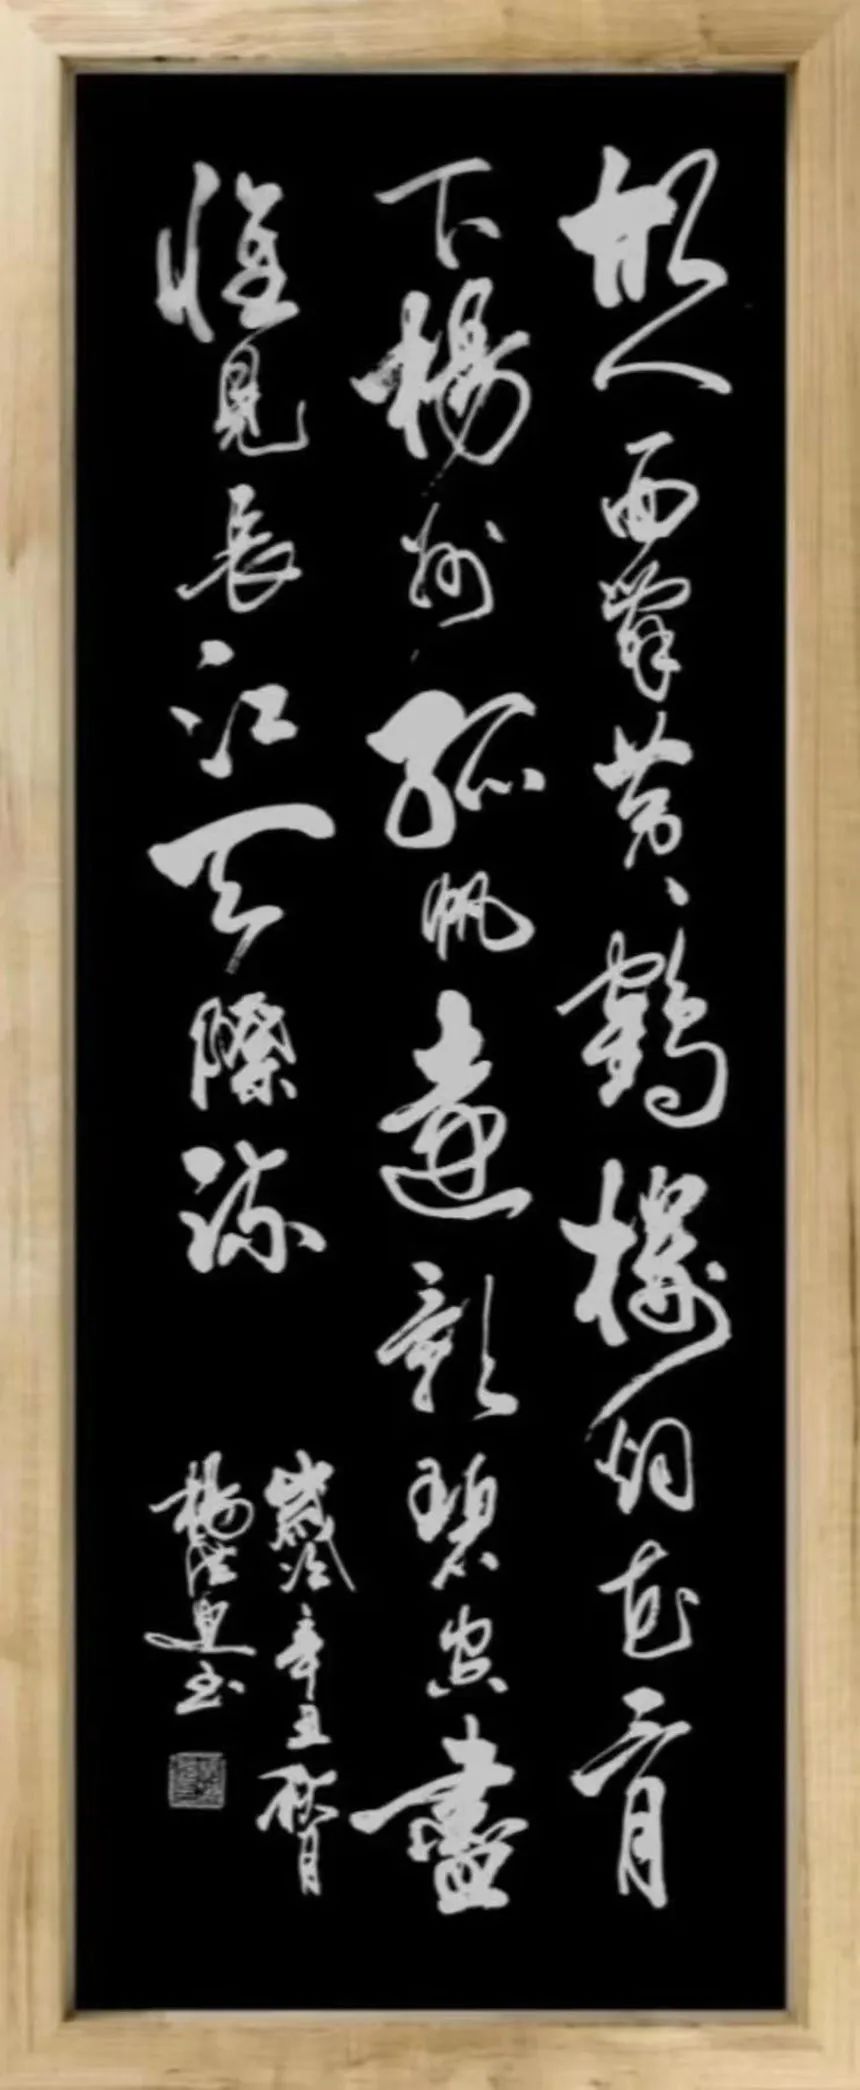 故人西辭黃鶴樓烟花三月
下楊州孤帆遠影碧空盡
惟見長江天際流
歲次辛丑秋月
楊书